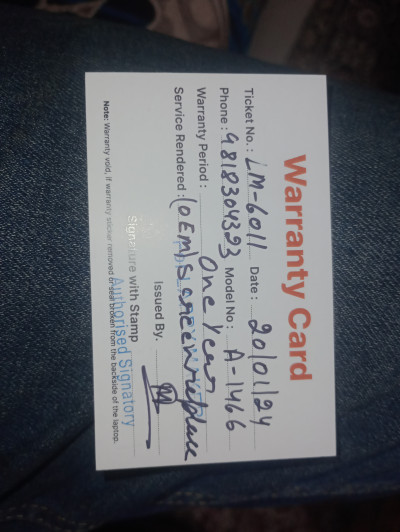 Warranty Card
Ticket No. : LM-6011 Date : 20/01/24
Phone : 9818304393 Model No : A-1466
Warranty Period : One Year
Service Rendered : (OEM) Screen replace
Issued By.
Signature with Stamp
Authorised Signatory
Note: Warranty void, if warranty sticker removed or tear broken from the backside of the laptop.